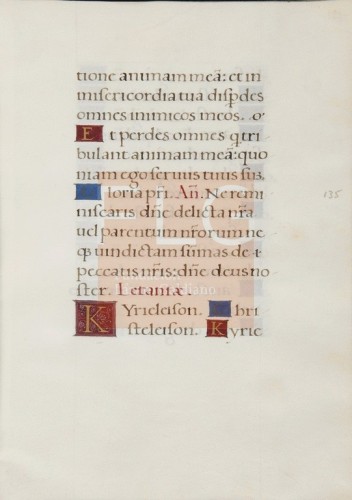 tione animam meā: et in
misericordia tua disp̄des
omnes inimicos meos. O
Et perdes omnes q̄ tri
bulant animam meā: quo
niam ego seruus tuus sū.
Gloria pr̄i. Añ. Ne remi
niscaris dn̄e delicta nr̄a
uel parentum nr̄orum ne
q̄ uindictam sumas de
peccatis nr̄is: dn̄e deus no
ster. Letaniæ.
Kyrieleison. Chri
steleison. Kyrie
135